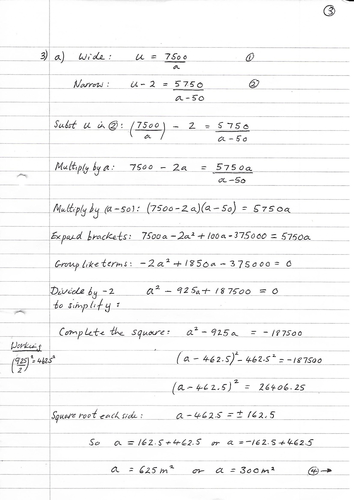 ③
3) a) Wide: u = 7500/a ①
Narrow: u - 2 = 5750/(a-50) ②
Subst u in ②: (7500/a) - 2 = 5750/(a-50)
Multiply by a: 7500 - 2a = 5750a/(a-50)
Multiply by (a-50): (7500-2a)(a-50) = 5750a
Expand brackets: 7500a - 2a² + 100a - 375000 = 5750a
Group like terms: -2a² + 1850a - 375000 = 0
Divide by -2 a² - 925a + 187500 = 0
to simplify:
Complete the square: a² - 925a = -187500
Working
(925/2)² = 462.5²
(a - 462.5)² - 462.5² = -187500
(a - 462.5)² = 26406.25
Square root each side: a - 462.5 = ± 162.5
So a = 162.5 + 462.5 or a = -162.5 + 462.5
a = 625m² or a = 300m² ④→